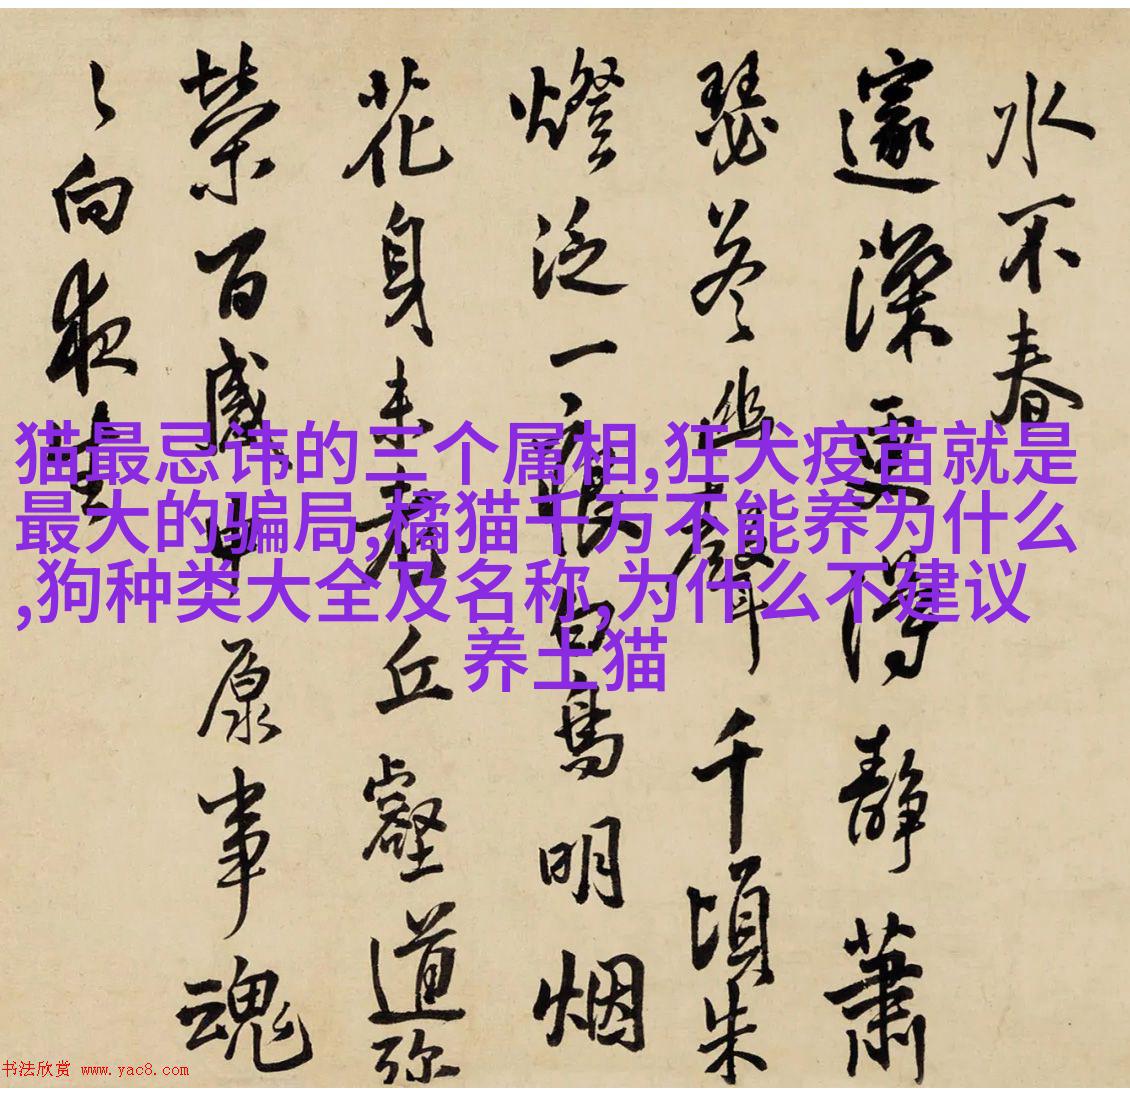 水不春
邃深更得靜蕭
瑟若幽聲千頃朱
燈泛一痕白鳥明烟
花身未老丘壑道弥
榮百感中原事魂
向夜
猫最忌讳的三个属相,狂犬疫苗就是
最大的骗局,橘猫千万不能养为什么
,狗种类大全及名称,为什么不建议
养土猫
书法欣赏 www.yac8.com